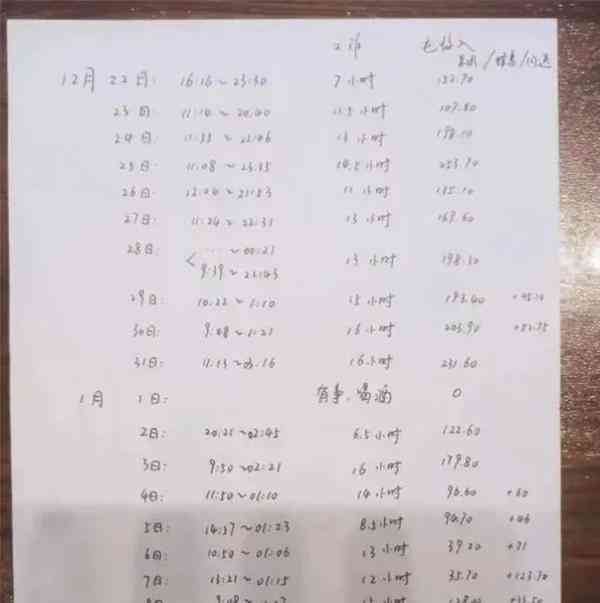 工作 毛收入
12月 22日: 16:16~23:30 7小时 132.70
23日: 11:10~20:40 11.5小时 107.80
24日: 11:33~22:06 13小时 198.10
25日: 11:08~23:35 14.5小时 253.70
26日: 12:04~21:53 11小时 135.10
27日: 11:24~22:31 13小时 169.60
28日: ~00:21
9:39~22:43 13小时 198.30
29日: 10:22~1:10 15小时 193.40
30日: 9:08~1:21 16小时 203.90 +52.75
31日: 11:13~03:16 16小时 231.60
1月 1日: 有事, 0
2日: 20:21~02:45 6.5小时 122.60
3日: 9:30~02:21 16小时 179.80
4日: 11:50~01:10 14小时 96.60 +60
5日: 14:37~01:23 8.5小时 94.70 +46
6日: 10:50~01:06 13小时 39.20 +71
7日: 13:21~01:15 12小时 35.70 +123.70